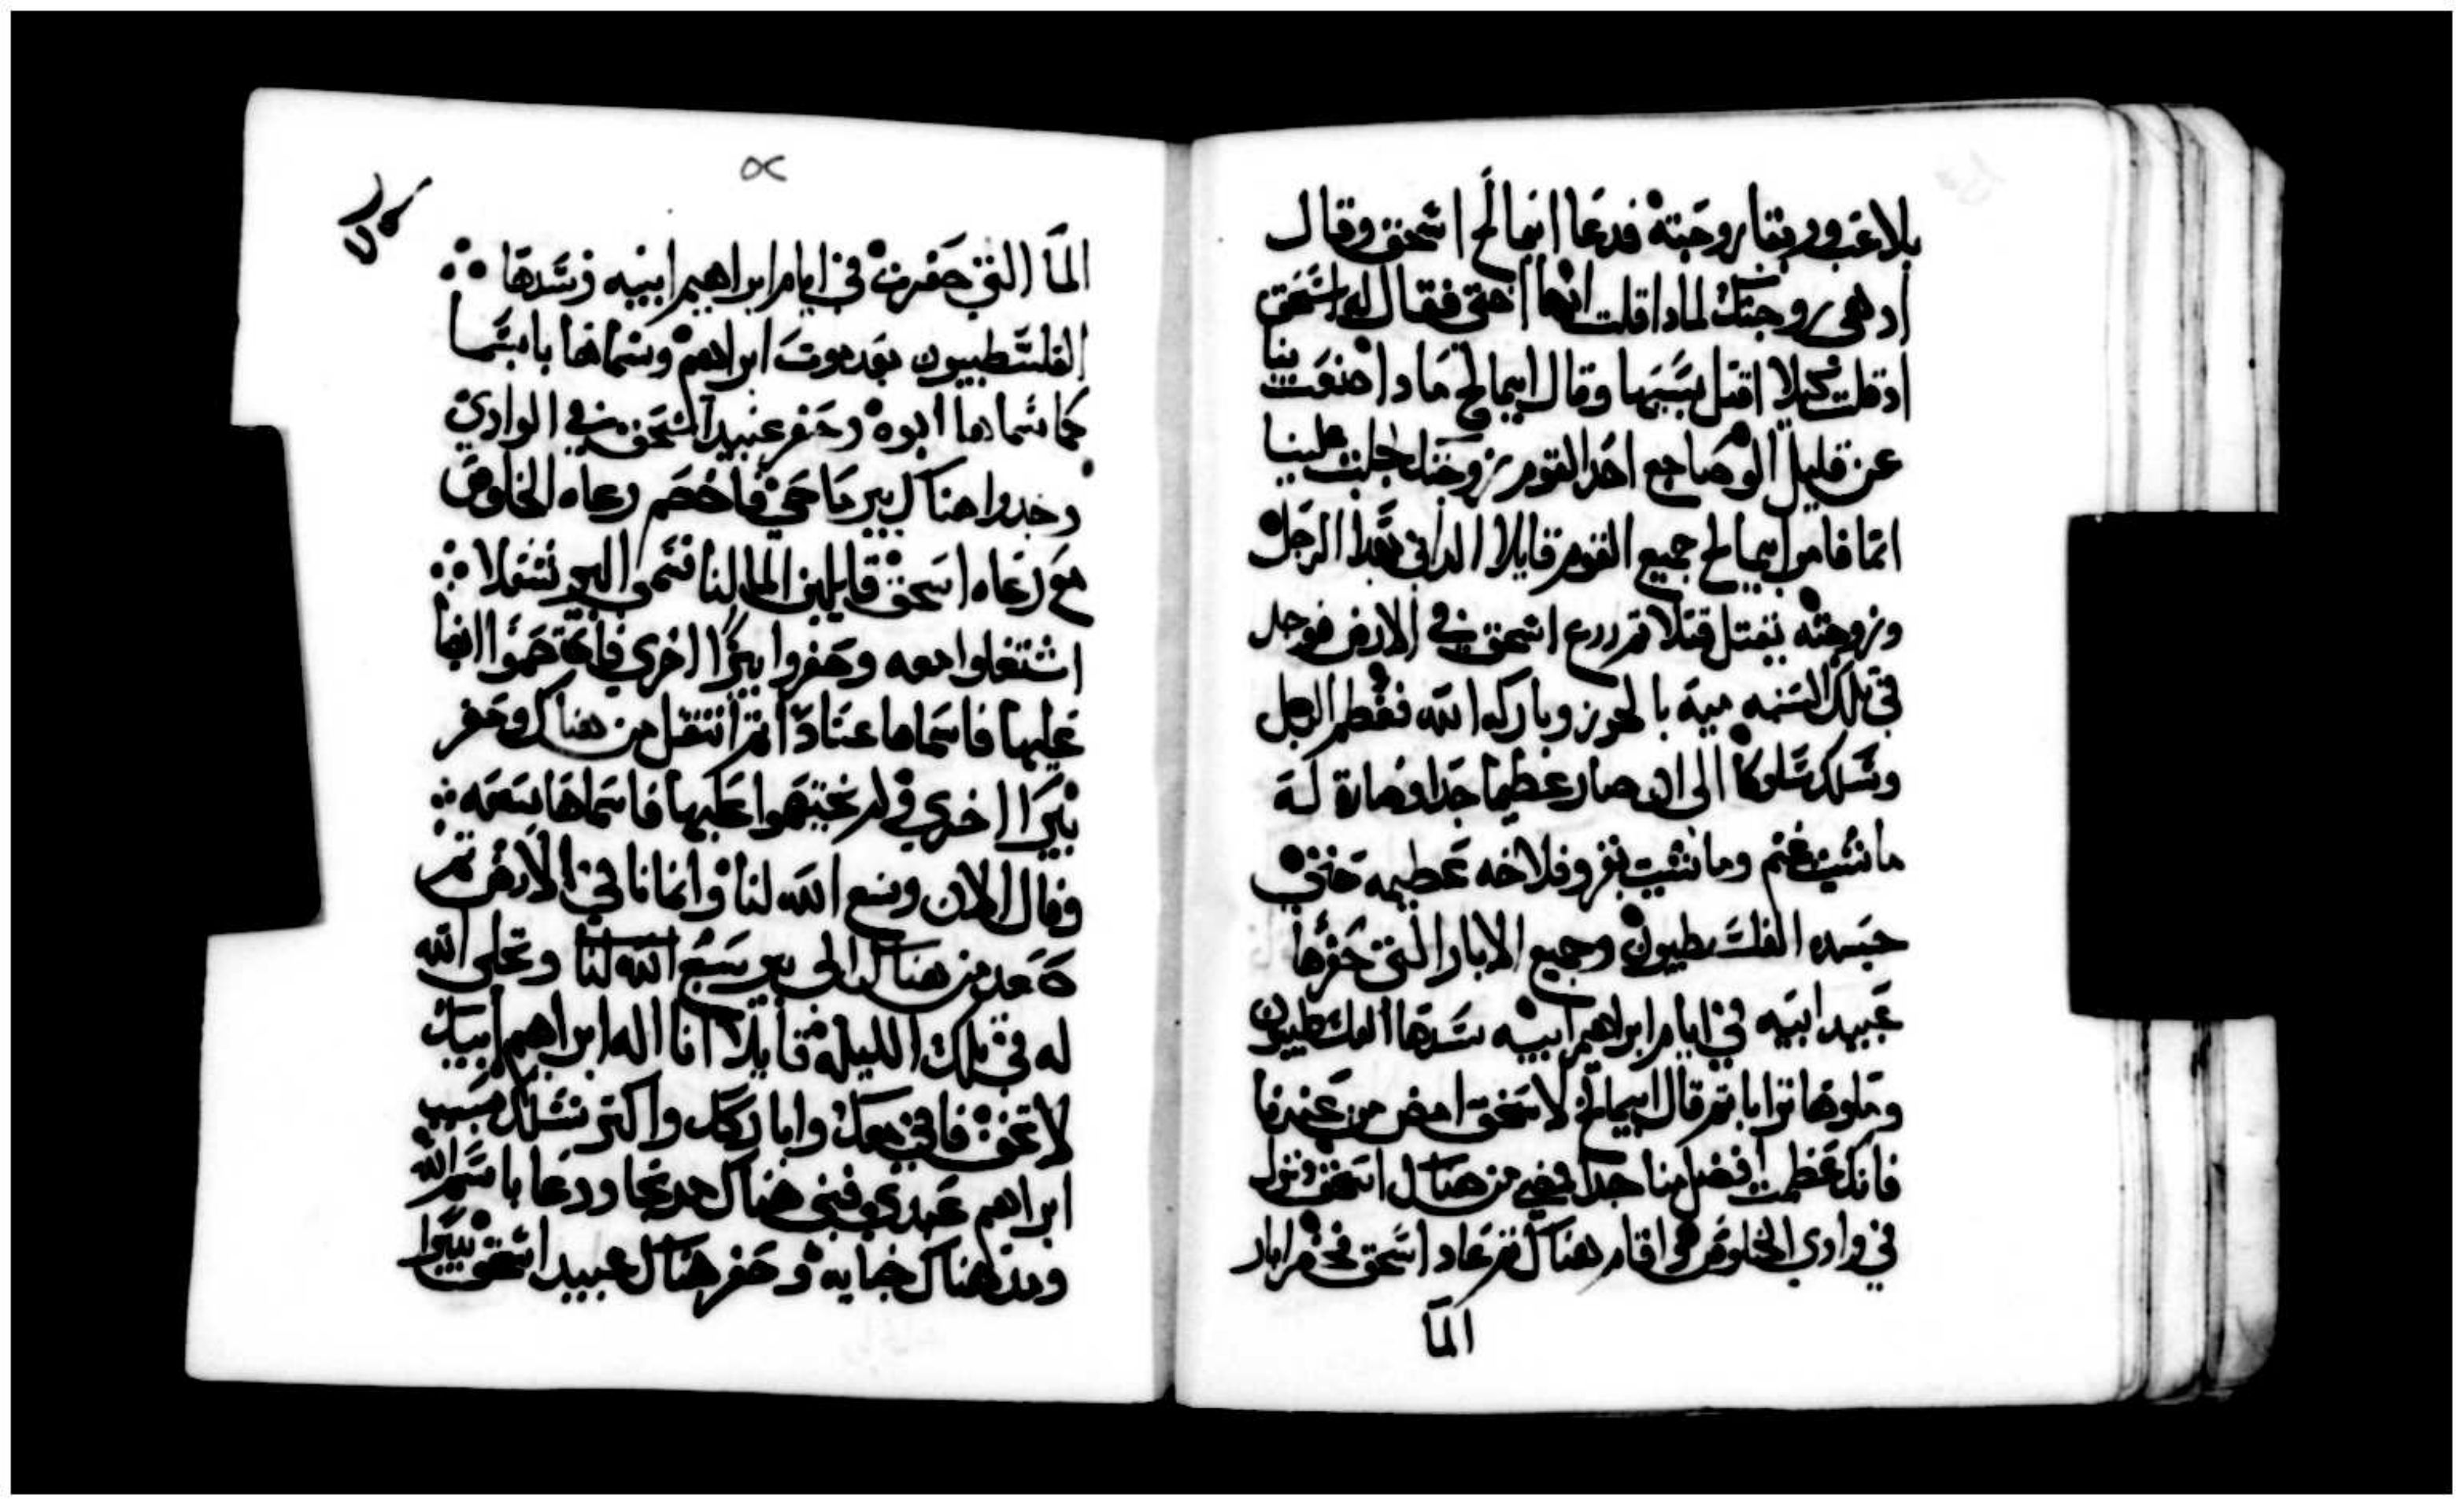 بلاعب ورفقا زوجته فدعا ابيمالخ اسحق وقال
اد هي زوجتك لمادا قلت انها اختي فقال له اسحق
اد قلت كيلا اقتل بسببها وقال ابيمالخ مادا صنعت بنا
عن قليل لو ضاجع احد القوم زوجتك لجلبت علينا
اثما فامر ابيمالخ جميع القوم قايلا الداني بهدا الرجل
وزوجته يقتل قتلا تم زرع اسحق في الارض فوجد
في تلك السنه ميه بالحوز وباركه الله فعظم الرجل
وسلك سلوكا الى ان صار عظيما جدا وصارة له
ماشيت غنم وماشيت بقر وفلاحه عظيمه حتي
حسده الفلسطيون وجميع الابار التي حفرها
عبيد ابيه في ايام ابراهيم ابيه سدها الفلسطيون
وملوها ترابا تم قال ابيمالخ لاسحق امض من عندنا
فانك عظمت افضل منا جدا فمضي من هناك اسحق ونزل
في وادي الخلوص واقام هناك تم عاد اسحق فحفر ابار
الما
الما التي حفرت في ايام ابراهيم ابيه وسدها
الفلسطييون بعد موت ابراهيم وسماها باسما
كما سماها ابوه وحفر عبيد اسحق في الوادي
وجدوا هناك بير ما حي فاخصم رعاه الخلوص
مع رعاه اسحق قايلين الما لنا فسمي البير شغلا
اشتغلوا معه وحفروا بيرا اخري فاختصموا ايضا
عليها فاسماها عنادا تم انتقل من هناك وحفر
بيرا اخري ولم يختصموا عليها فاسماها سعه
وقال الان وسع الله لنا وانمانا في الارض تم
صعد من هناك الى بير سبع الله لنا وتجلى الله
له في تلك الليلة قايلا انا اله ابراهيم ابيك
لا تخف فاني معك واباركك واكتر نسلك بسبب
ابراهيم عبدي فبنى هناك مدبحا ودعا باسم الله
ومد هناك خبايه وحفر هناك عبيد اسحق بيرا